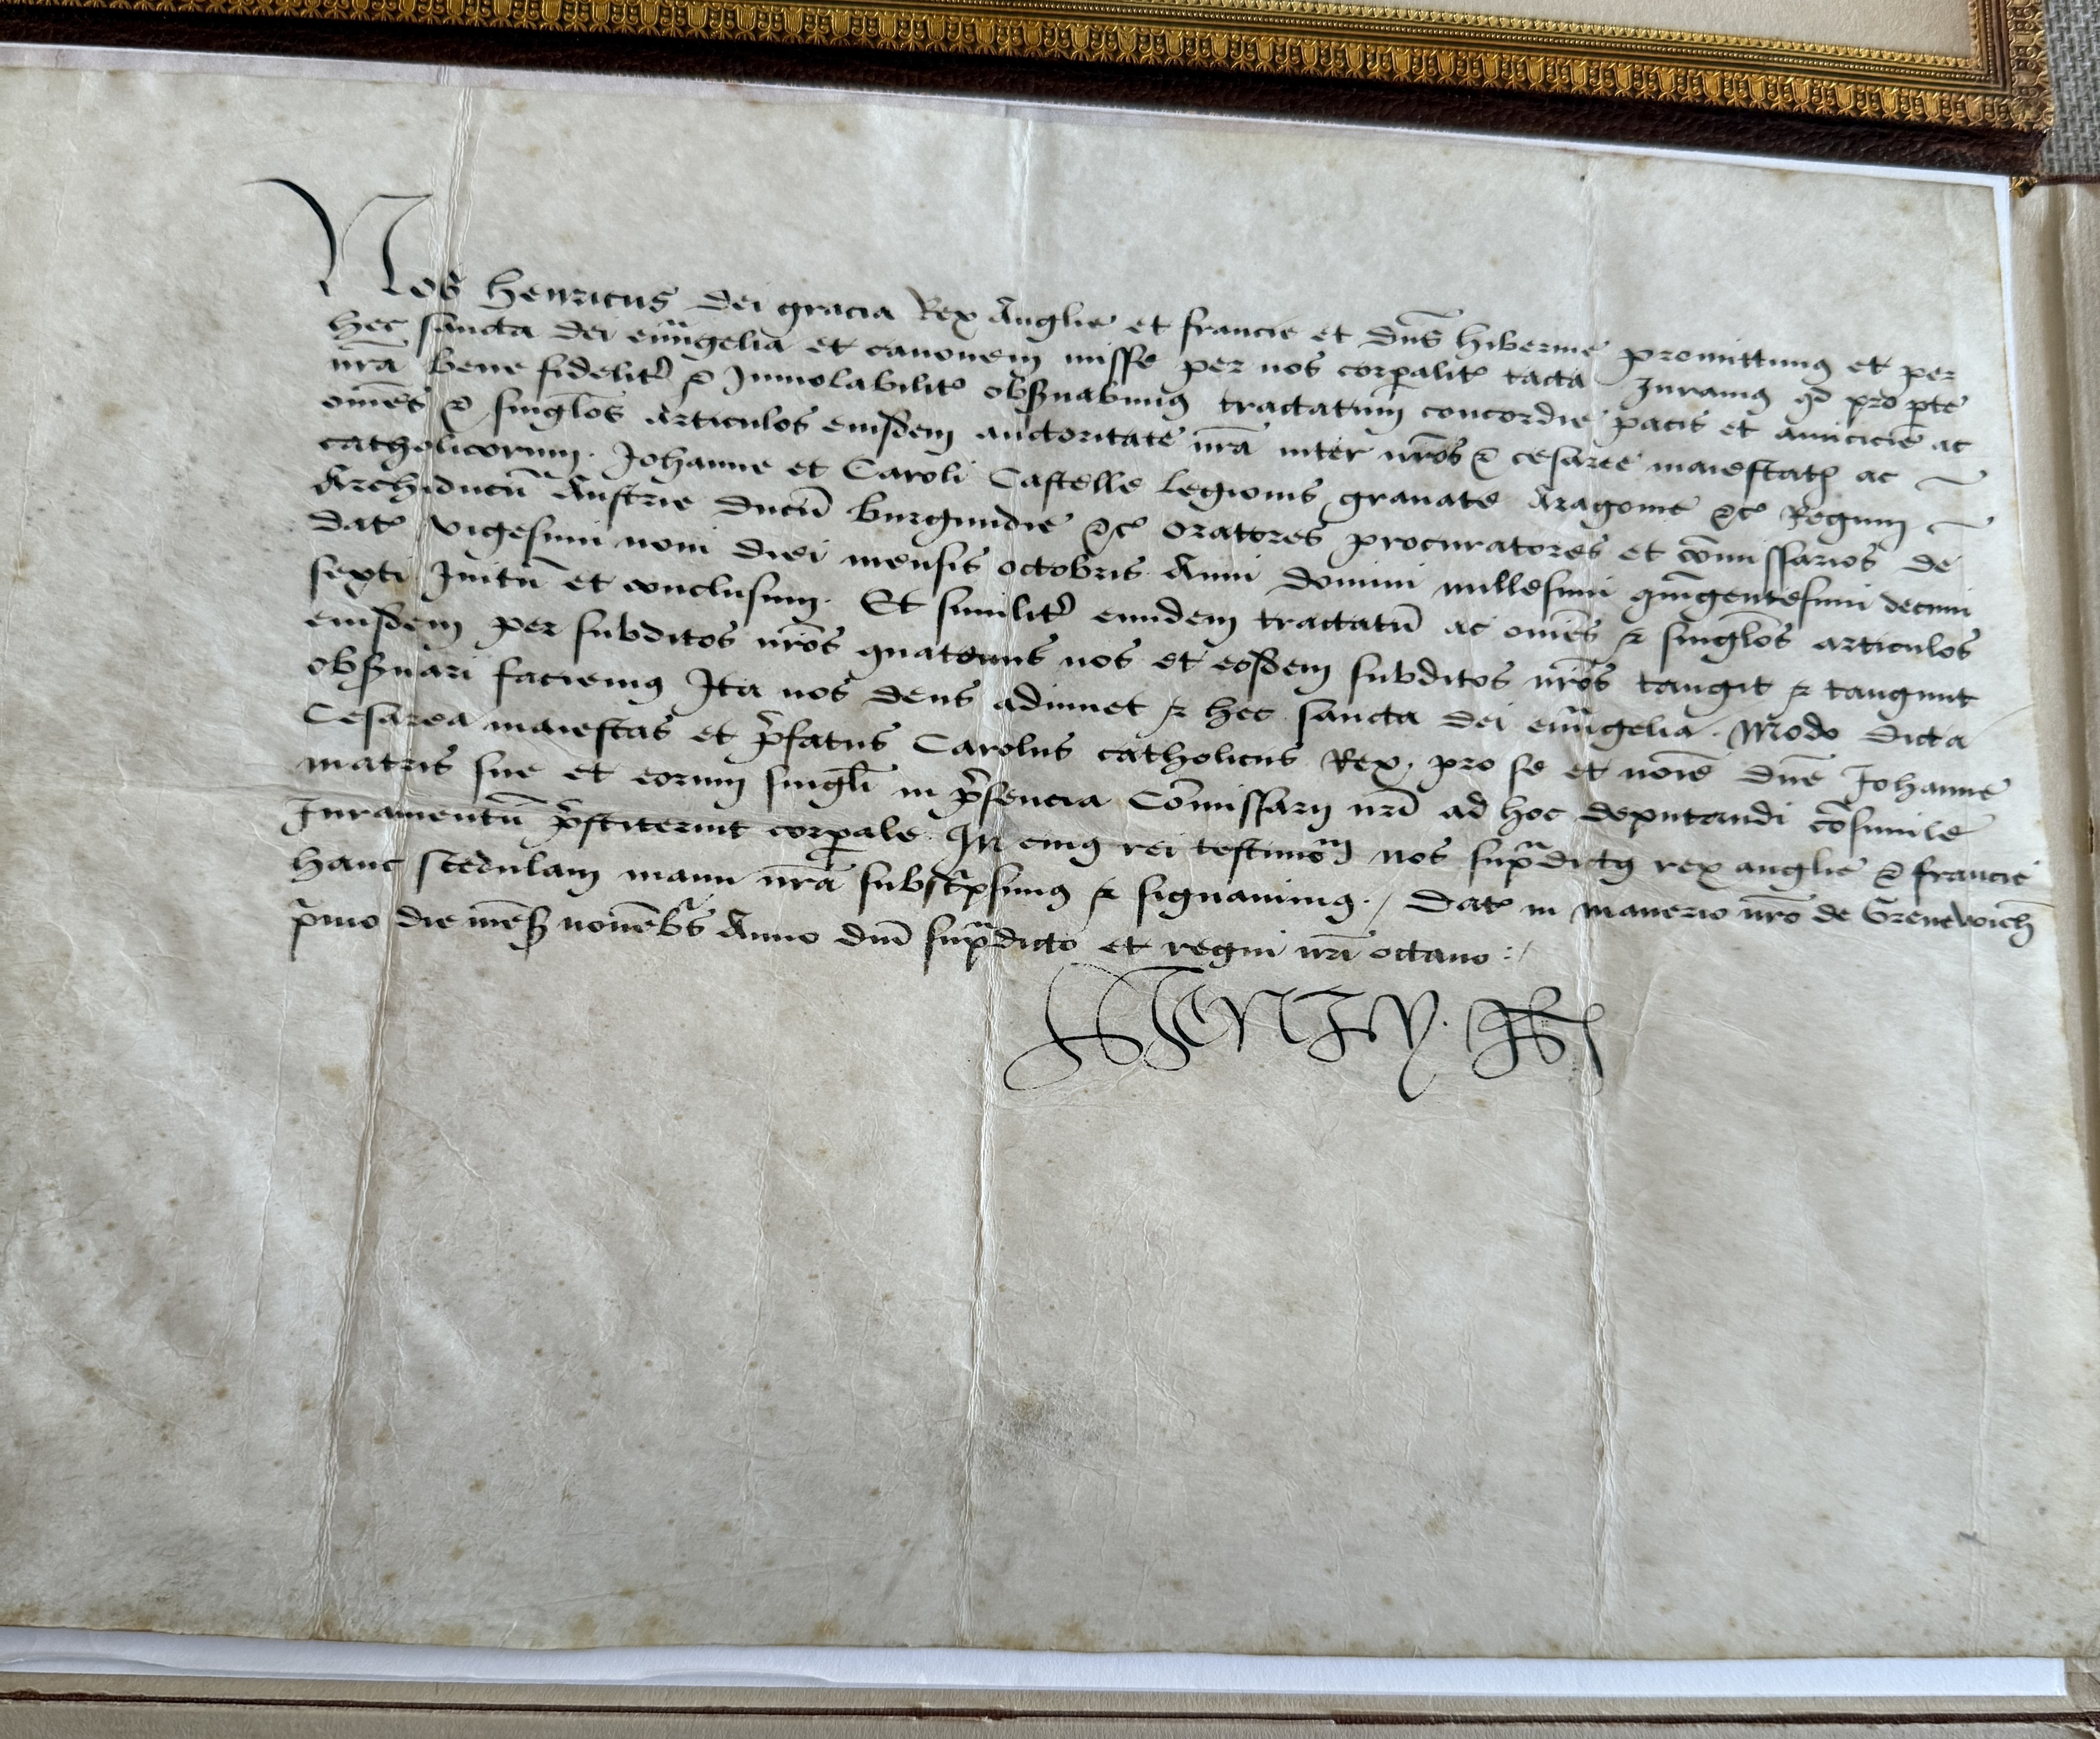 Nos henricus dei gracia Rex Anglie et francie et dn̄s hibernie promittimus et per
hec sancta dei euāngelia et canonem misse per nos corꝑalitˀ tacta Iuramus qd̄ pro ꝑte
nrā bene fidelitˀ ⁊ Inuiolabilitˀ obẜuabimus tractatum concordie pacis et amicicie ac
omēs ⁊ singlōs Articulos eiusdem auctoritate nrā inter nrōs ⁊ cesaree maiestatꝭ ac
catholicorum . Iohanne et Caroli Castelle legionis granate Aragonie ⁊cˀ Regum
Archiducū Austrie Ducū burgundie ⁊cˀ oratores procuratores et cōmissarios de
datˀ vigesimi noni diei mensis octobris Anni domini millesimi quīngentesimi decimi
sexti Initū et conclusum . Et similitˀ eundem tractatū ac omēs ⁊ singlōs articulos
eiusdem per subditos nrōs quatenus nos et eosdem subditos nrōs tangit ⁊ tangunt
obẜuari faciemus Ita nos deus adiuuet ⁊ hec sancta dei euāngelia . Modo dicta
Cesarea maiestas et p̄fatus Carolus catholicus Rex , pro se et noīe dn̄e Iohanne
matris sue et eorum singlī in p̄sencia Cōmissarij nrī ad hoc deputandi cōsimile
Iuramentū p̄stiterint corꝑale . In cuius rei testimōm nos sup̄dictus rex anglie ⁊ francie
hanc scedulam manu nrā subsc̄psimus ⁊ signauimus . / Datˀ in manerio nrō de Grenewich
p̄mo die mēs nouēbs Anno dnī sup̄dicto et regni nrī octauo : /
Henry . R